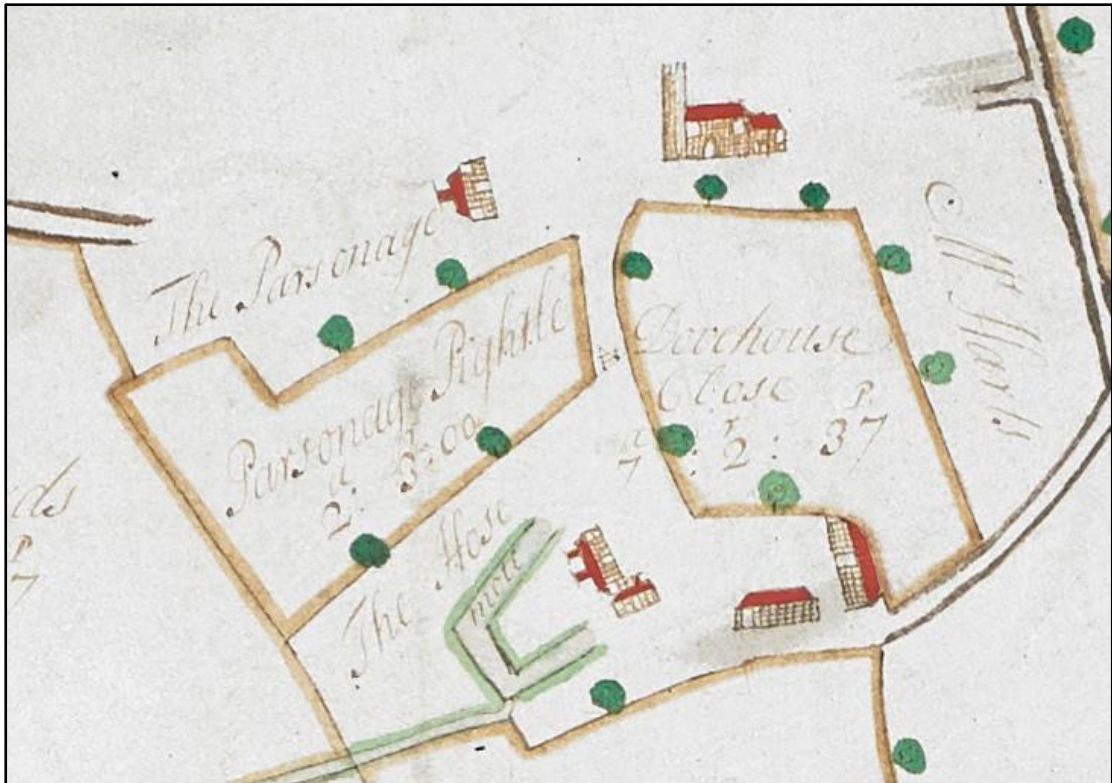 The Parsonage
Parsonage Pightle
a
2: 3:00
Dovehouse
Close
a r p
7 : 2 : 37
Mr Hart's
The Hose
mote
ds
P
7